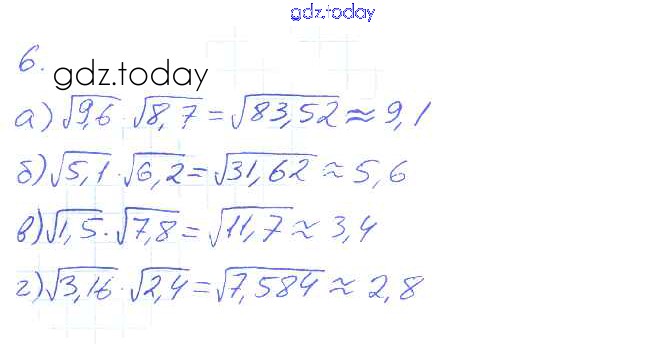 gdz.today
6.
gdz.today
а) √9,6 · √8,7 = √83,52 ≈ 9,1
б) √5,1 · √6,2 = √31,62 ≈ 5,6
в) √1,5 · √7,8 = √11,7 ≈ 3,4
г) √3,16 · √2,4 = √7,584 ≈ 2,8